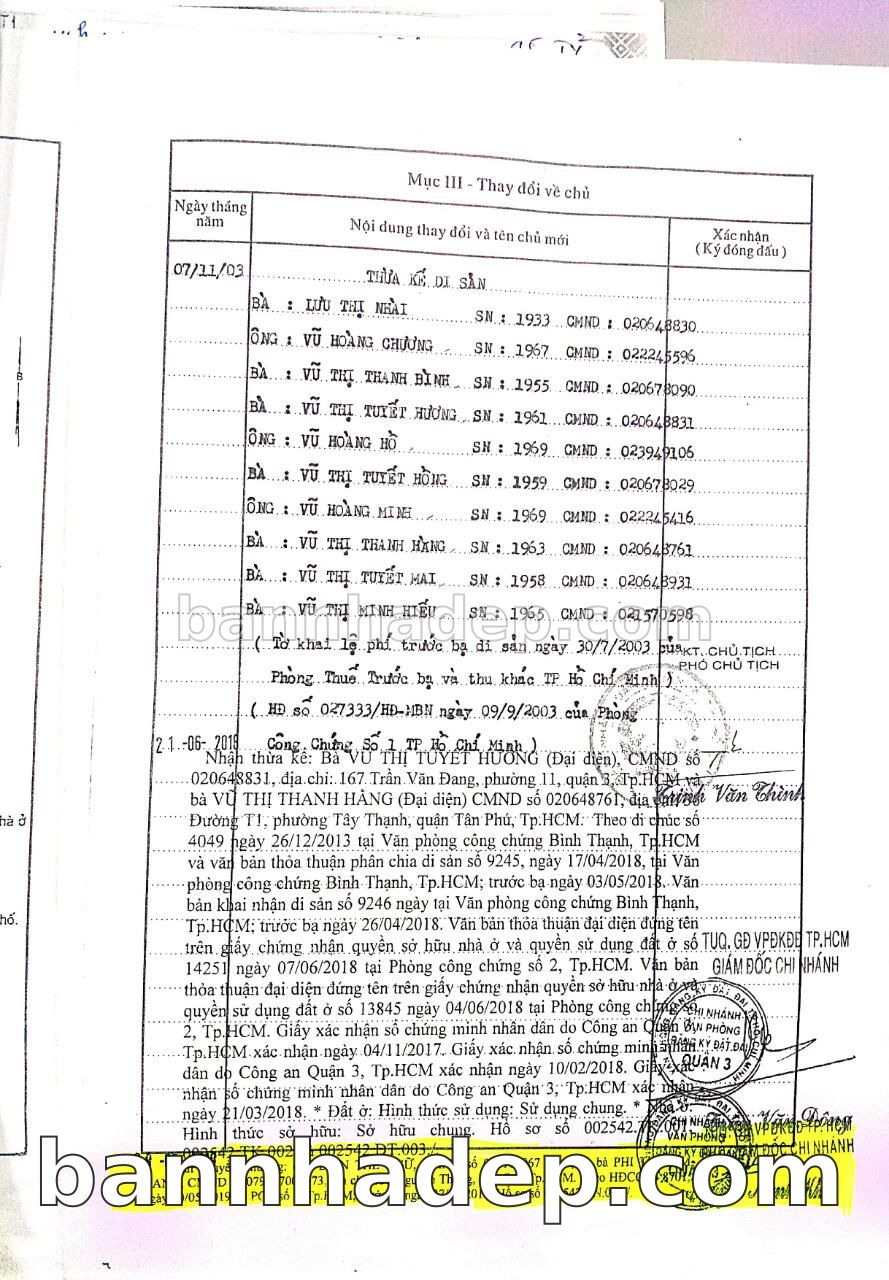 T1
Mục III - Thay đổi về chủ
Ngày tháng năm
Nội dung thay đổi và tên chủ mới
Xác nhận
( Ký đóng dấu )
07/11/03 THỪA KẾ DI SẢN
BÀ : LƯU THỊ NHÀI SN : 1933 CMND : 020648830
ÔNG : VŨ HOÀNG CHƯƠNG SN : 1967 CMND : 022245596
BÀ : VŨ THỊ THANH BÌNH SN : 1955 CMND : 020678090
BÀ : VŨ THỊ TUYẾT HƯƠNG SN : 1961 CMND : 020648831
ÔNG : VŨ HOÀNG HỒ SN : 1969 CMND : 023949106
BÀ : VŨ THỊ TUYẾT HỒNG SN : 1959 CMND : 020678029
ÔNG : VŨ HOÀNG MINH SN : 1969 CMND : 022245416
BÀ : VŨ THỊ THANH HẰNG SN : 1963 CMND : 020648761
BÀ : VŨ THỊ TUYẾT MAI SN : 1958 CMND : 020648931
BÀ : VŨ THỊ MINH HIẾU SN : 1965 CMND : 021570598
bannhadep.com
( Tờ khai lệ phí trước bạ di sản ngày 30/7/2003 của
Phòng Thuế Trước bạ và thu khác TP Hồ Chí Minh )
( HĐ số 027333/HĐ-MBN ngày 09/9/2003 của Phòng
Công Chứng Số 1 TP Hồ Chí Minh )
KT. CHỦ TỊCH
PHÓ CHỦ TỊCH
Trịnh Văn Thình
21-06-2018
Nhận thừa kế: Bà VŨ THỊ TUYẾT HƯƠNG (Đại diện), CMND số
020648831, địa chỉ: 167 Trần Văn Đang, phường 11, quận 3, Tp.HCM và
bà VŨ THỊ THANH HẰNG (Đại diện) CMND số 020648761, địa chỉ
Đường T1, phường Tây Thạnh, quận Tân Phú, Tp.HCM. Theo di chúc số
4049 ngày 26/12/2013 tại Văn phòng công chứng Bình Thạnh, Tp.HCM
và văn bản thỏa thuận phân chia di sản số 9245, ngày 17/04/2018, tại Văn
phòng công chứng Bình Thạnh, Tp.HCM; trước bạ ngày 03/05/2018. Văn
bản khai nhận di sản số 9246 ngày tại Văn phòng công chứng Bình Thạnh,
Tp.HCM; trước bạ ngày 26/04/2018. Văn bản thỏa thuận đại diện đứng tên
trên giấy chứng nhận quyền sở hữu nhà ở và quyền sử dụng đất ở số
14251 ngày 07/06/2018 tại Phòng công chứng số 2, Tp.HCM. Văn bản
thỏa thuận đại diện đứng tên trên giấy chứng nhận quyền sở hữu nhà ở và
quyền sử dụng đất ở số 13845 ngày 04/06/2018 tại Phòng công chứng số
2, Tp.HCM. Giấy xác nhận số chứng minh nhân dân do Công an Quận
Tp.HCM xác nhận ngày 04/11/2017. Giấy xác nhận số chứng minh nhân
dân do Công an Quận 3, Tp.HCM xác nhận ngày 10/02/2018. Giấy xác
nhận số chứng minh nhân dân do Công an Quận 3, Tp.HCM xác nhận
ngày 21/03/2018. * Đất ở: Hình thức sử dụng: Sử dụng chung. * Nhà ở:
Hình thức sở hữu: Sở hữu chung. Hồ sơ số
TUQ. GĐ VPĐKĐĐ TP.HCM
GIÁM ĐỐC CHI NHÁNH
CHI NHÁNH
VĂN PHÒNG
ĐĂNG KÝ ĐẤT ĐAI
QUẬN 3
CHI NHÁNH
VĂN PHÒNG
bannhadep.com